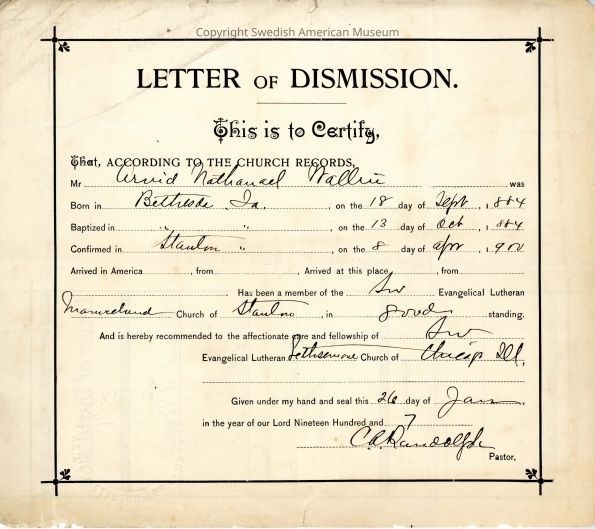 Copyright Swedish American Museum
LETTER OF DISMISSION.
This is to Certify,
That, ACCORDING TO THE CHURCH RECORDS,
Mr Arvid Nathanael Wallin was
Born in Bethesda Ia. on the 18 day of Sept, 1884
Baptized in " " , on the 13 day of Oct, 1884
Confirmed in Stanton " , on the 8 day of Apr, 190
Arrived in America , from . Arrived at this place , from
Has been a member of the Sw Evangelical Lutheran
Church of Stanton , in good standing.
And is hereby recommended to the affectionate care and fellowship of Sw
Evangelical Lutheran Gethsemane Church of Chicago Ill.
Given under my hand and seal this 26 day of Jan
in the year of our Lord Nineteen Hundred and 7
C. A. Randolph
Pastor.